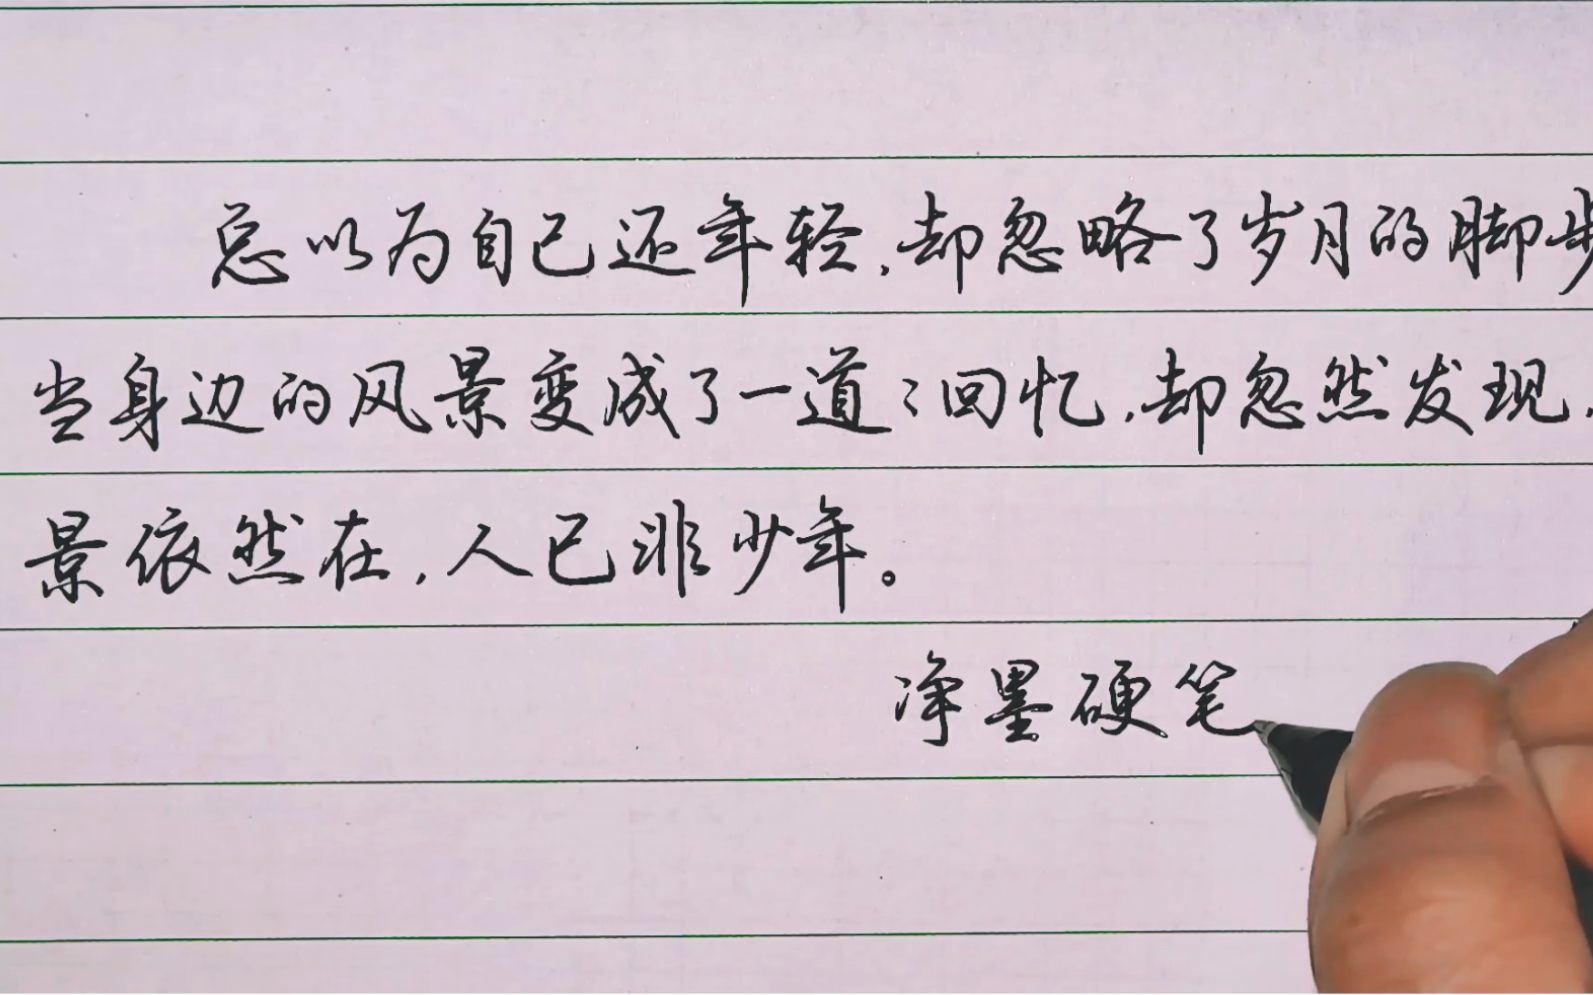 总以为自己还年轻，却忽略了岁月的脚步
当身边的风景变成了一道々回忆，却忽然发现，
景依然在，人已非少年。
净墨硬笔